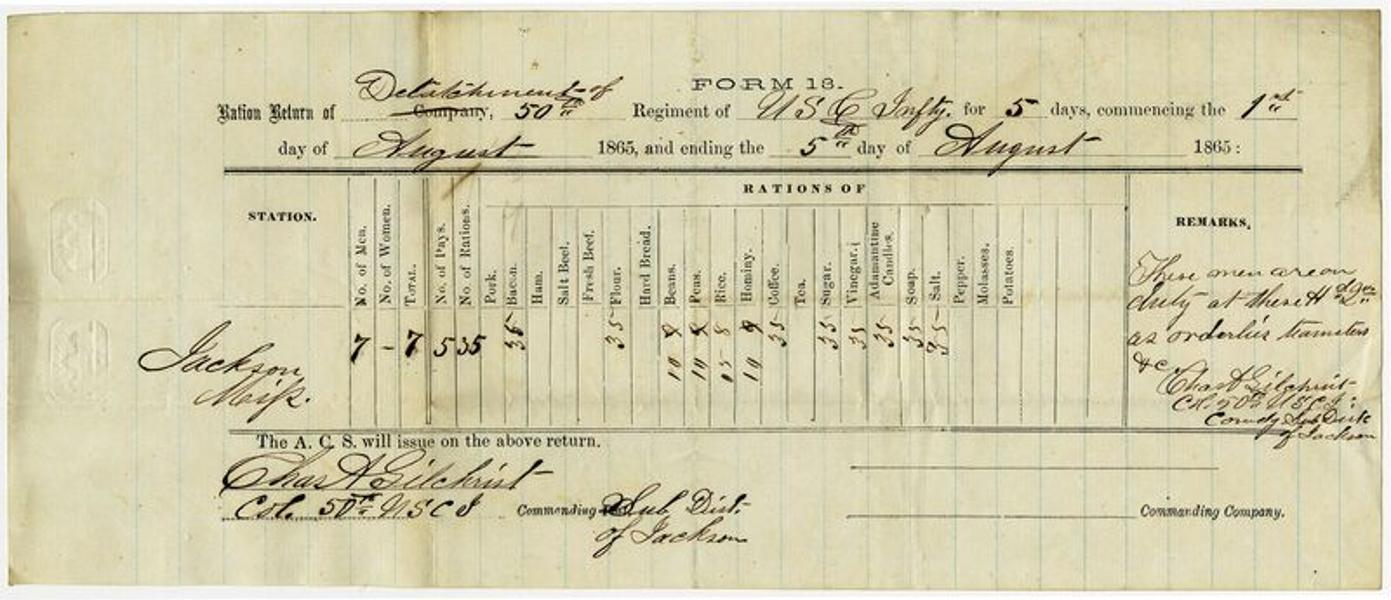 FORM 13.
Detatchment of
Ration Return of Company, 50th Regiment of U S C Infty. for 5 days, commencing the 1st
day of August 1865, and ending the 5th day of August 1865:
RATIONS OF
STATION.
No. of Men.
No. of Women.
TOTAL.
No. of Days.
No. of Rations.
Pork.
Bacon.
Ham.
Salt Beef.
Fresh Beef.
Flour.
Hard Bread.
Beans.
Peas.
Rice.
Hominy.
Coffee.
Tea.
Sugar.
Vinegar.
Adamantine Candles.
Soap.
Salt.
Pepper.
Molasses.
Potatoes.
REMARKS,
Jackson
Miss.
7 – 7 5 35 35 35 35 35 35 35 35 35
These men are on
duty at these Hd Qrs
as orderlies teamsters
&c.
Chas A Gilchrist
Col. 50th U S C I
Comdg Sub Dist
of Jackson
The A. C. S. will issue on the above return.
Chas A Gilchrist
Col. 50th U S C I Commending Sub Dist.
of Jackson
Commanding Company.